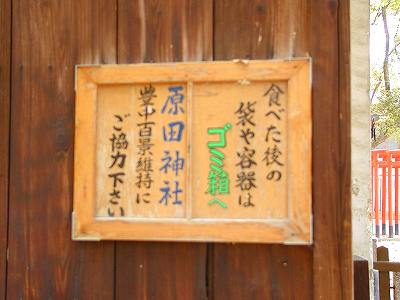 食べた後の
袋や容器は
ゴミ箱へ
原田神社
豊中百景維持に
ご協力下さい